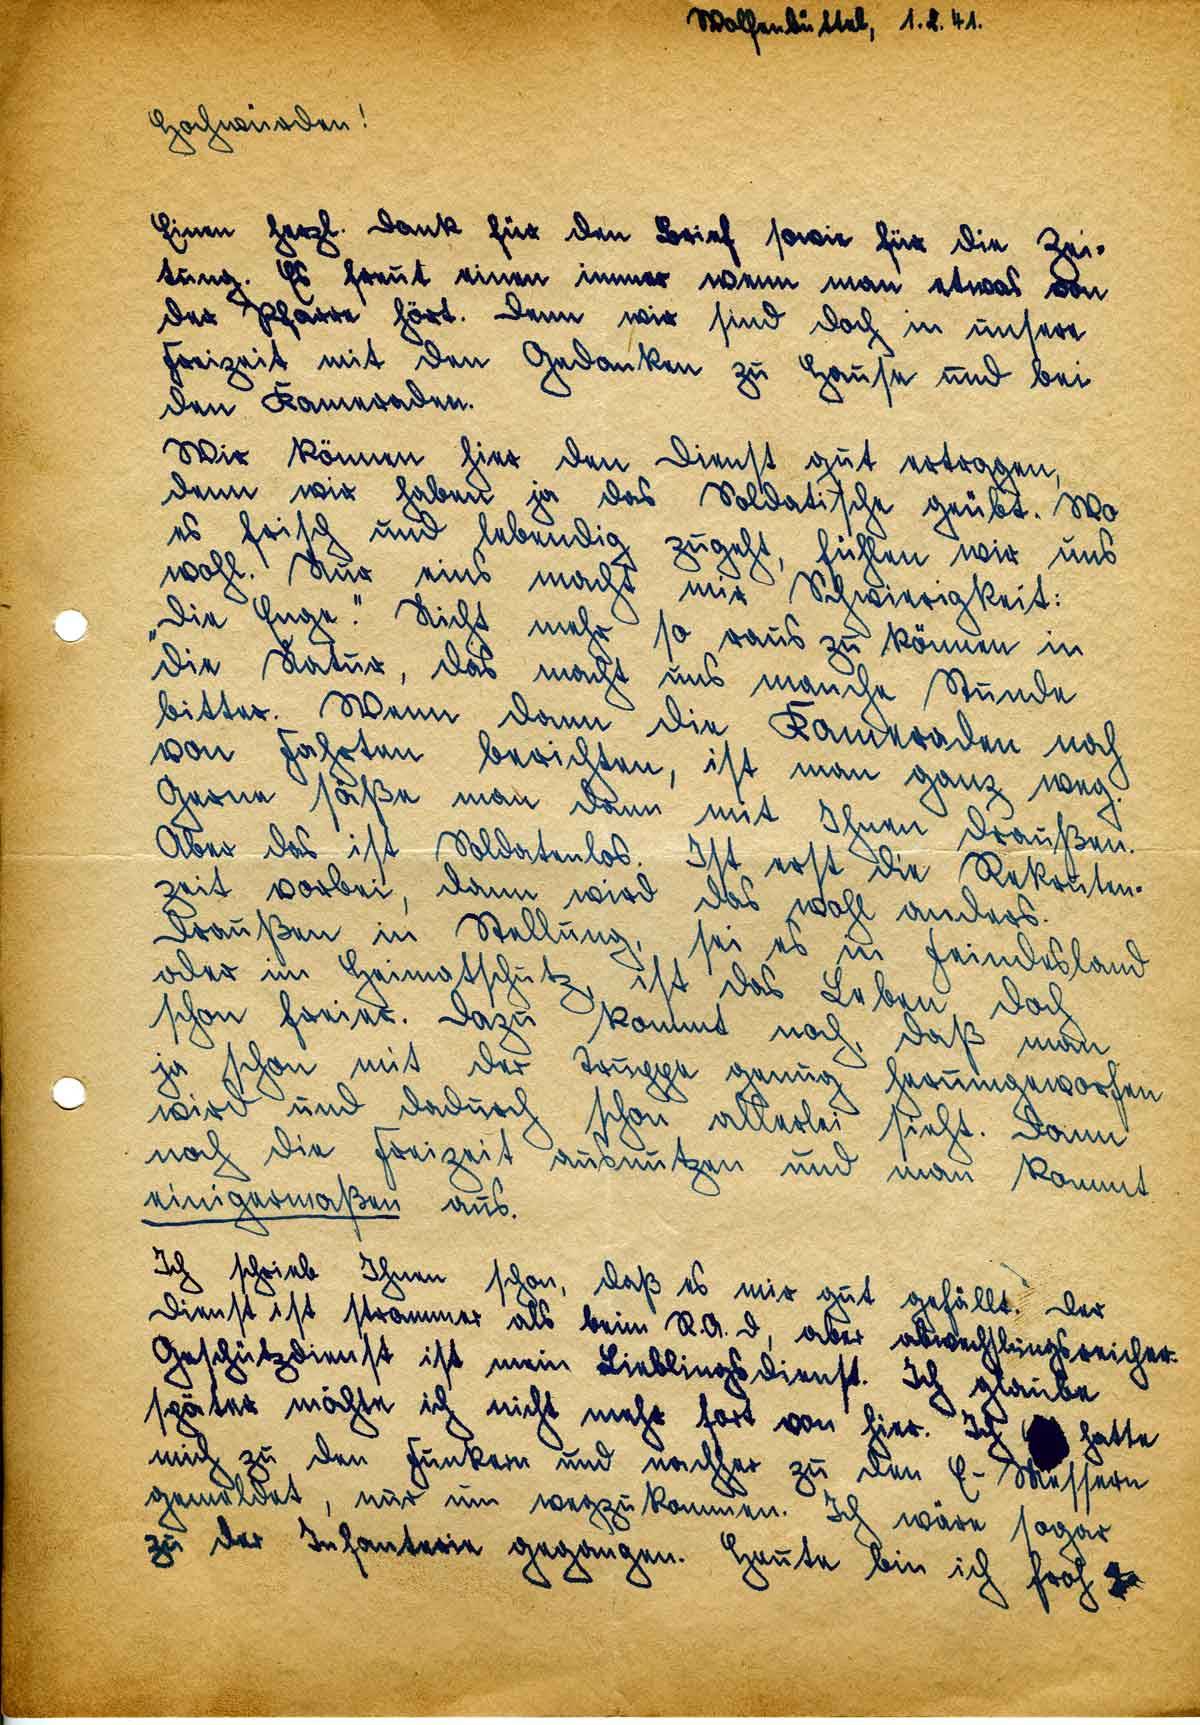 Wolfenbüttel, 1.2.41.
Hochwürden!
Einen herzl. Dank für den Brief sowie für die Zei-
tung. Es freut einen immer wenn man etwas von
der Pfarre hört. Denn wir sind doch in unsere
Freizeit mit den Gedanken zu Hause und bei
den Kameraden.
Wir können hier den Dienst gut ertragen,
denn wir haben ja das Soldatische geübt. Wo
es frisch und lebendig zugeht, fühlen wir uns
wohl. Nur eins macht mir Schwierigkeit:
„Die Enge“. Nicht mehr so raus zu können in
die Natur, das macht uns manche Stunde
bitter. Wenn dann die Kameraden noch
von Fahrten berichten, ist man ganz weg.
Gerne säße man dann mit Ihnen draußen.
Aber das ist Soldatenlos. Ist erst die Rekruten-
zeit vorbei, dann wird das wohl anders.
Draußen in Stellung, sei es in Feindesland
oder im Heimatschutz, ist das Leben doch
schon freier. Dazu kommt noch, daß man
ja schon mit der Truppe genug herumgeworfen
wird und dadurch schon allerlei sieht. Dann
noch die Freizeit ausnutzen und man kommt
einigermaßen aus.
Ich schrieb Ihnen schon, daß es mir gut gefällt. Der
Dienst ist strammer als beim R.A.D, aber abwechslungsreicher.
Geschützdienst ist mein Lieblingsdienst. Ich glaube
später möchte ich nicht mehr fort von hier. Ich hatte
mich zu den Funkern und nachher zu den E-Messern
gemeldet, nur um wegzukommen. Ich wäre sogar
zu der Infanterie gegangen. Heute bin ich froh